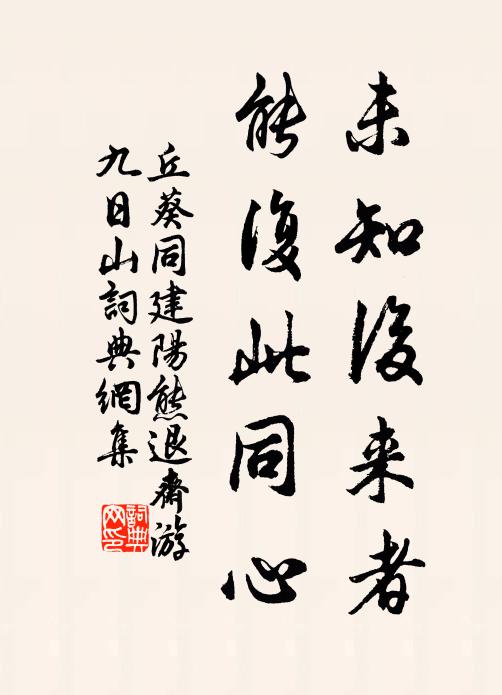 未知後来者
能復此同心
丘葵同建陽熊退齋游
九日山詞典網集
詞典
网印